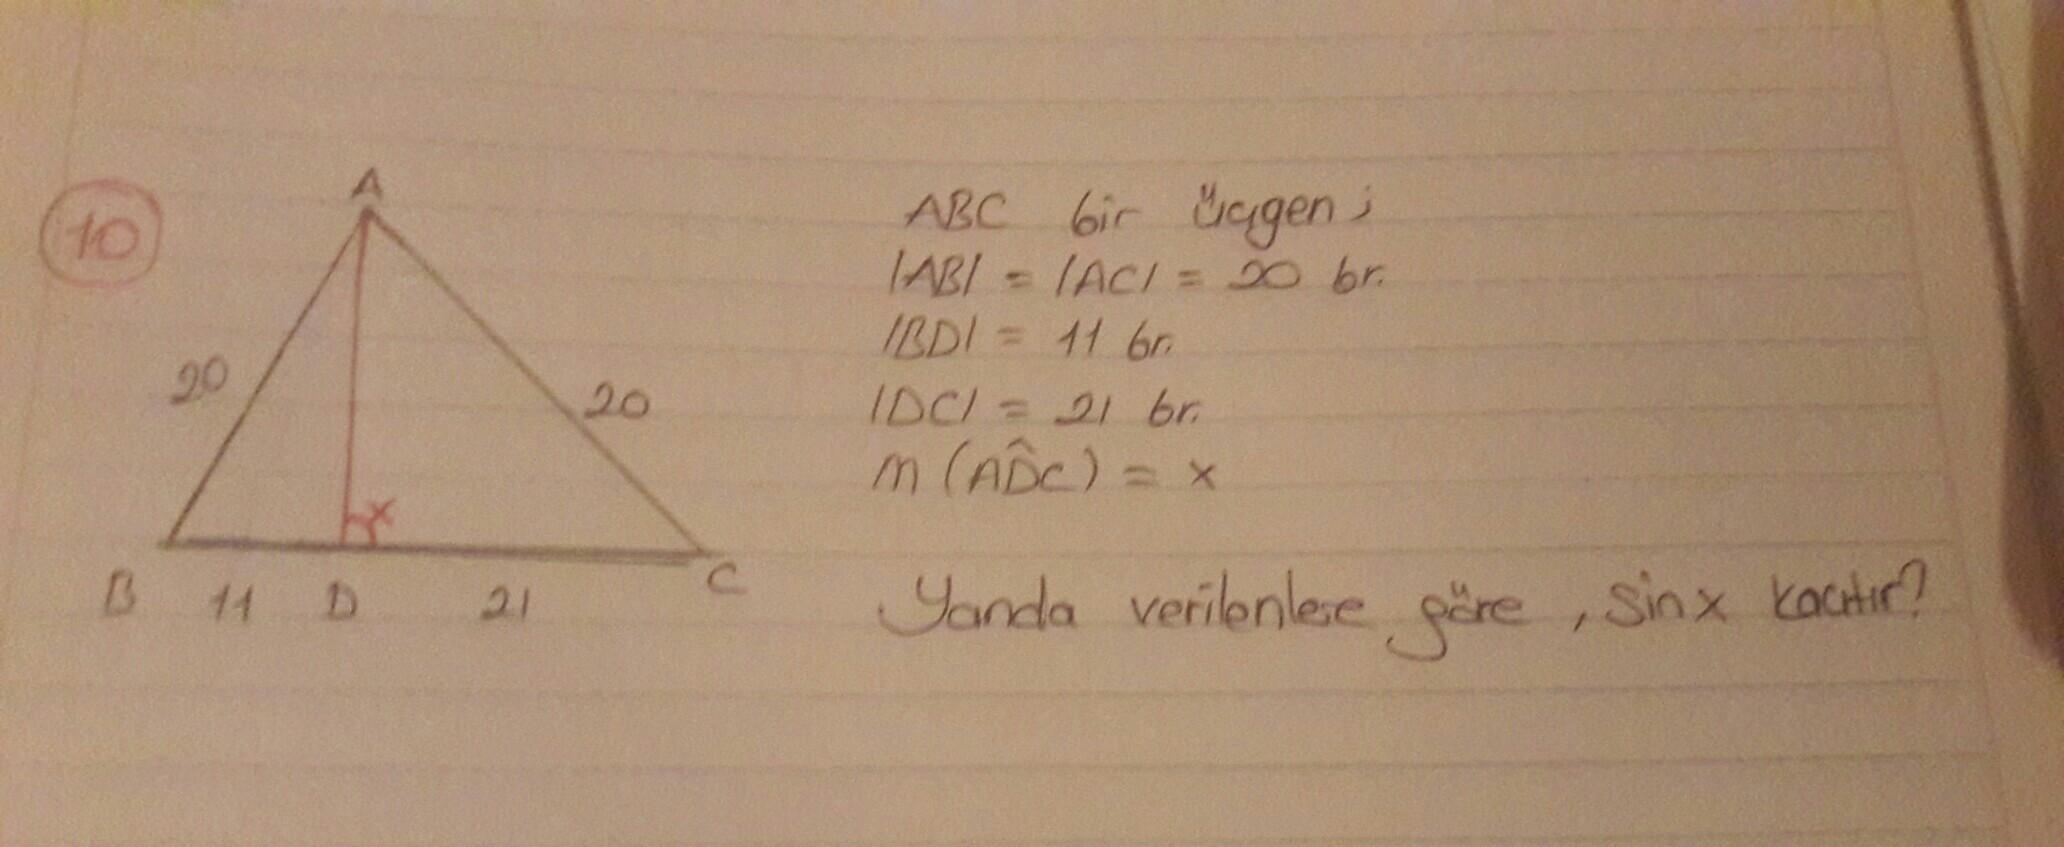 10
A
20
20
x
B 11 D 21 C
ABC bir üçgen;
|AB| = |AC| = 20 br.
|BD| = 11 br.
|DC| = 21 br.
m (AD̂C) = x
Yanda verilenlere göre, sinx kaçtır?